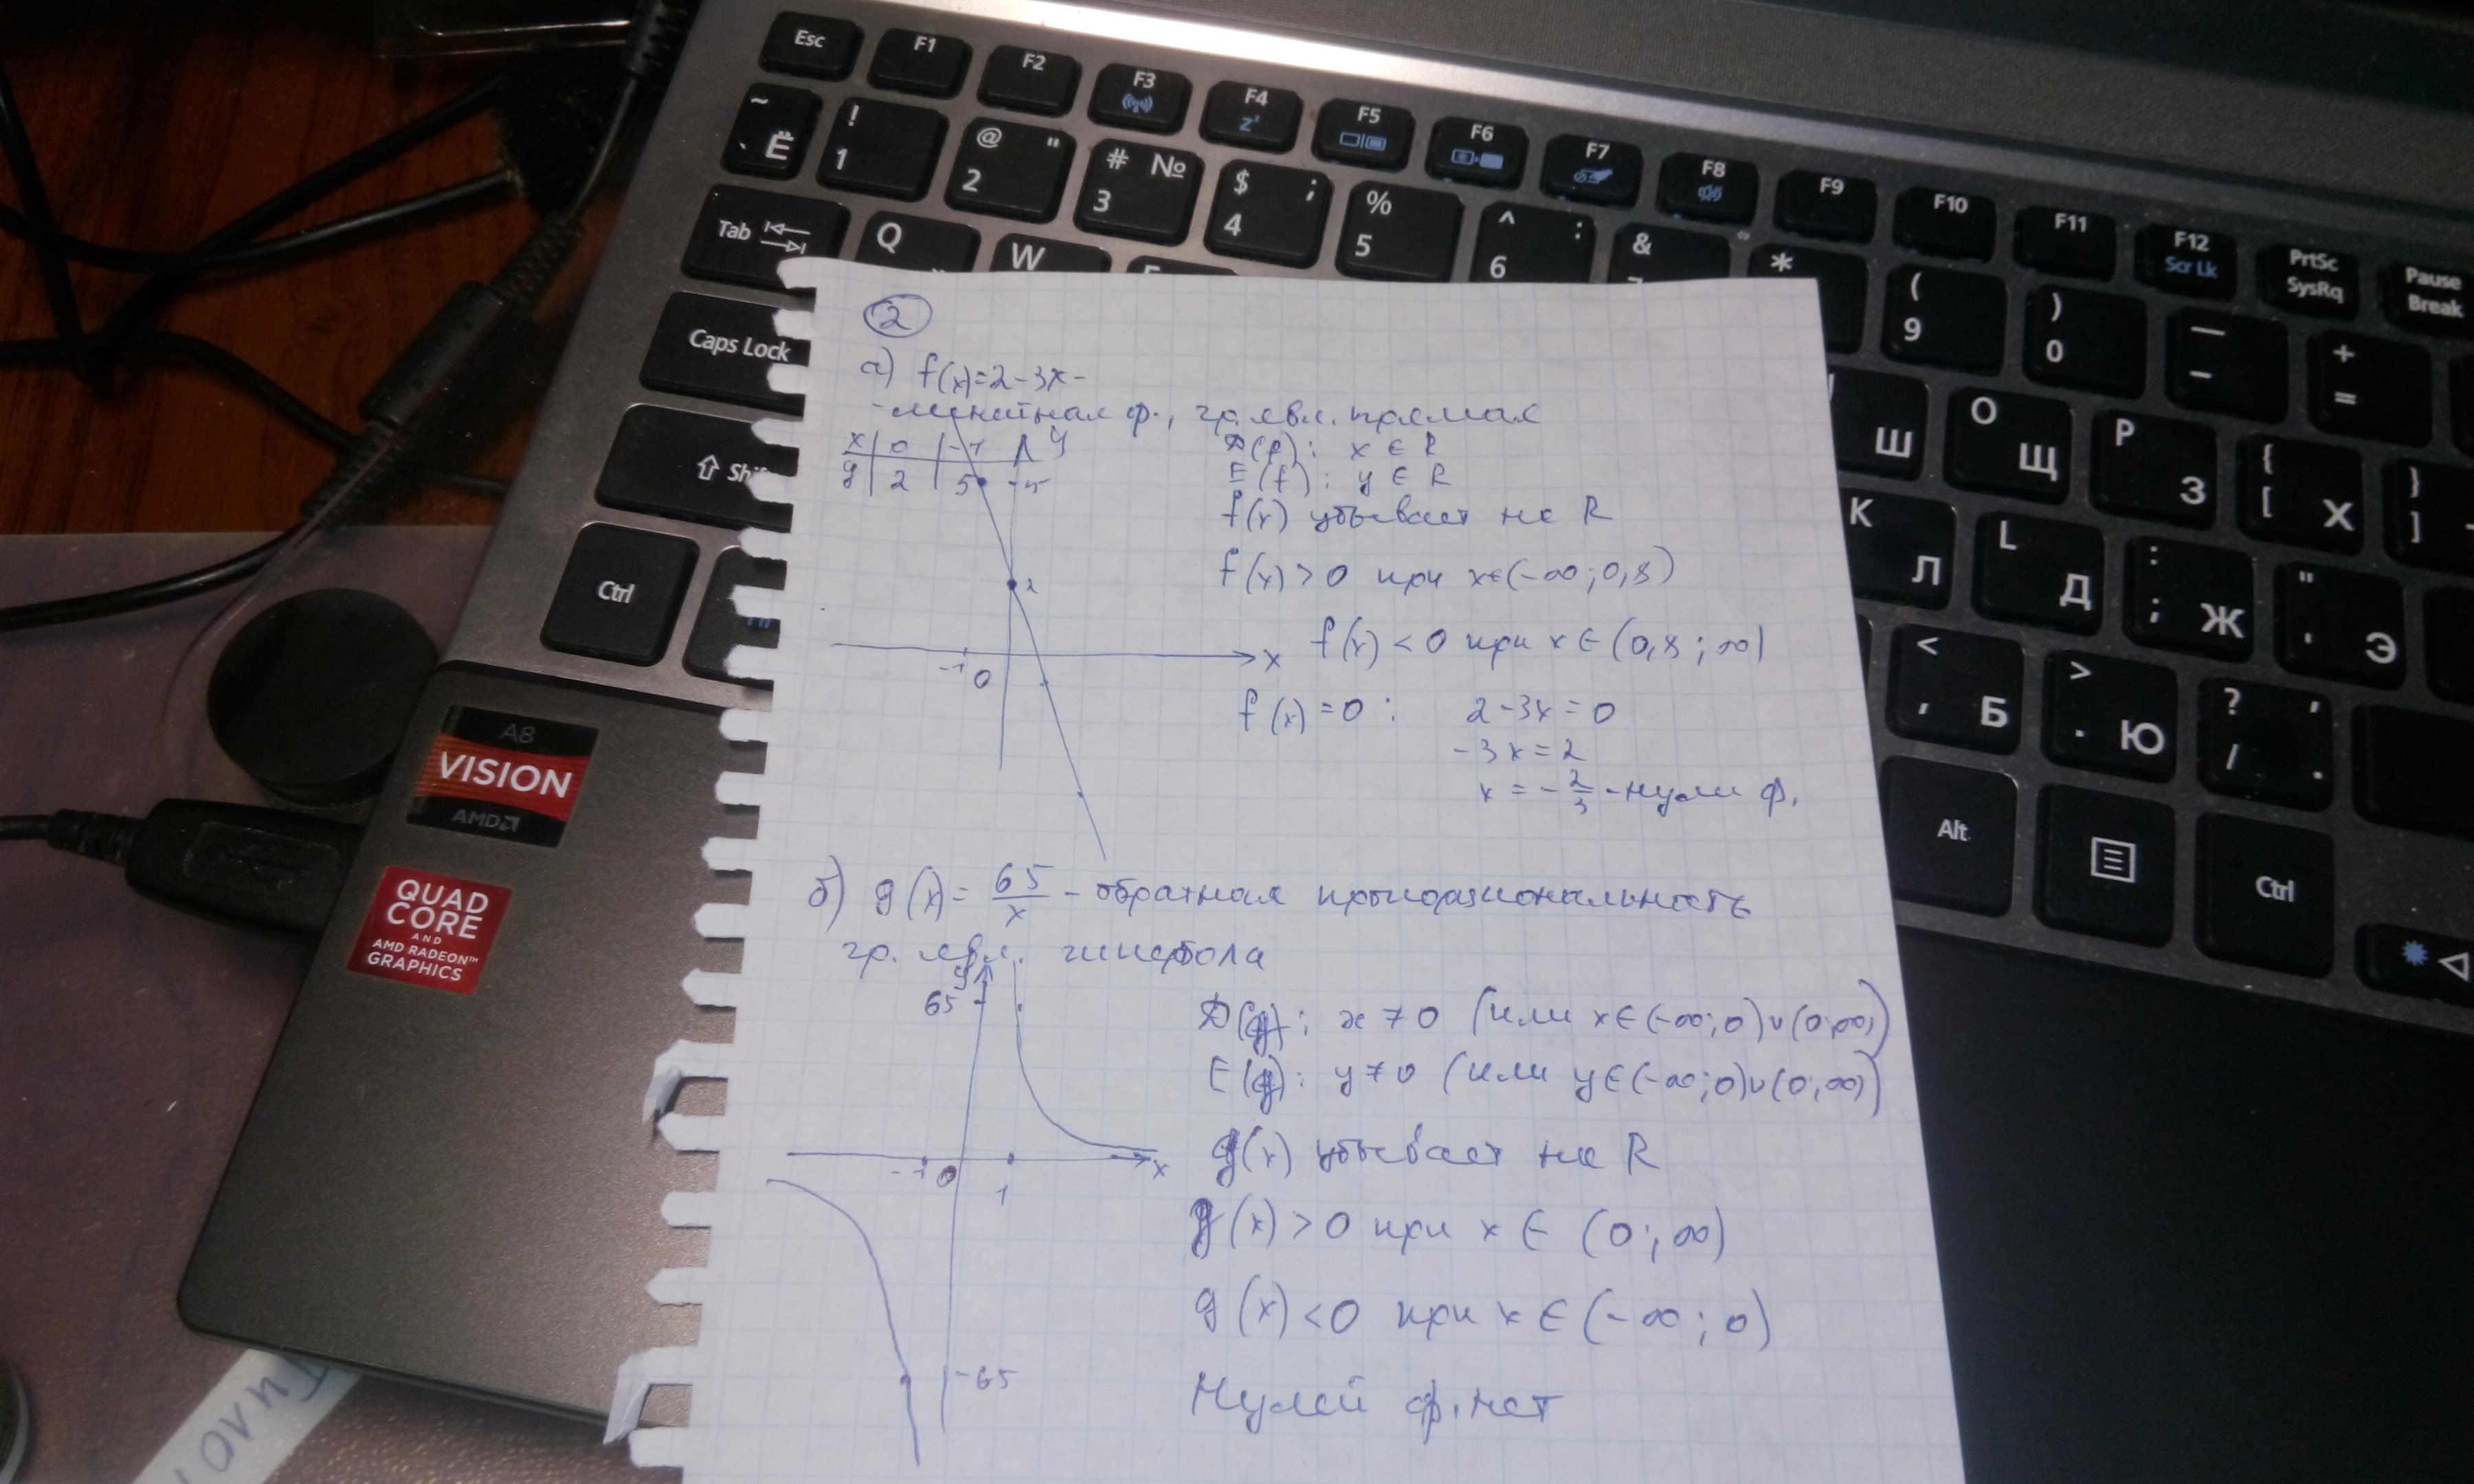 Esc F1 F2 F3 F4 F5 F6 F7 F8 F9 F10 F11 F12 PrtSc Pause
Z² Scr Lk SysRq Break
~ ` Ё ! 1 @ " 2 # № 3 $ ; 4 % 5 ^ : 6 & * ( 9 ) 0 — - + =
Tab Q W
Caps Lock
Ctrl
Ш O Щ P З { [ Х } ]
K Л L Д : ; Ж " ' Э
< , Б > . Ю ? / , .
Alt Ctrl
A8
VISION
AMD
QUAD
CORE
AND
AMD RADEON™
GRAPHICS
2
а) f(x)=2-3x-
-линейная ф., гр. явл. прямая
x 0 -1 y
y 2 5 -5
2
-1 0 x
D(f): x ∈ R
E(f): y ∈ R
f(x) убывает на R
f(x) > 0 при x∈(-∞; 0,8)
f(x) < 0 при x ∈ (0,8; ∞)
f(x) = 0: 2-3x = 0
-3x = 2
x = -2/3 - нули ф.
б) g(x) = 65/x - обратная пропорциональность
гр. явл. гипербола
y
65
-1 0 1 x
-65
D(g): x ≠ 0 (или x∈(-∞;0)∪(0;∞))
E(g): y ≠ 0 (или y∈(-∞;0)∪(0;∞))
g(x) убывает на R
g(x) > 0 при x ∈ (0; ∞)
g(x) < 0 при x ∈ (-∞; 0)
Нулей ф. нет